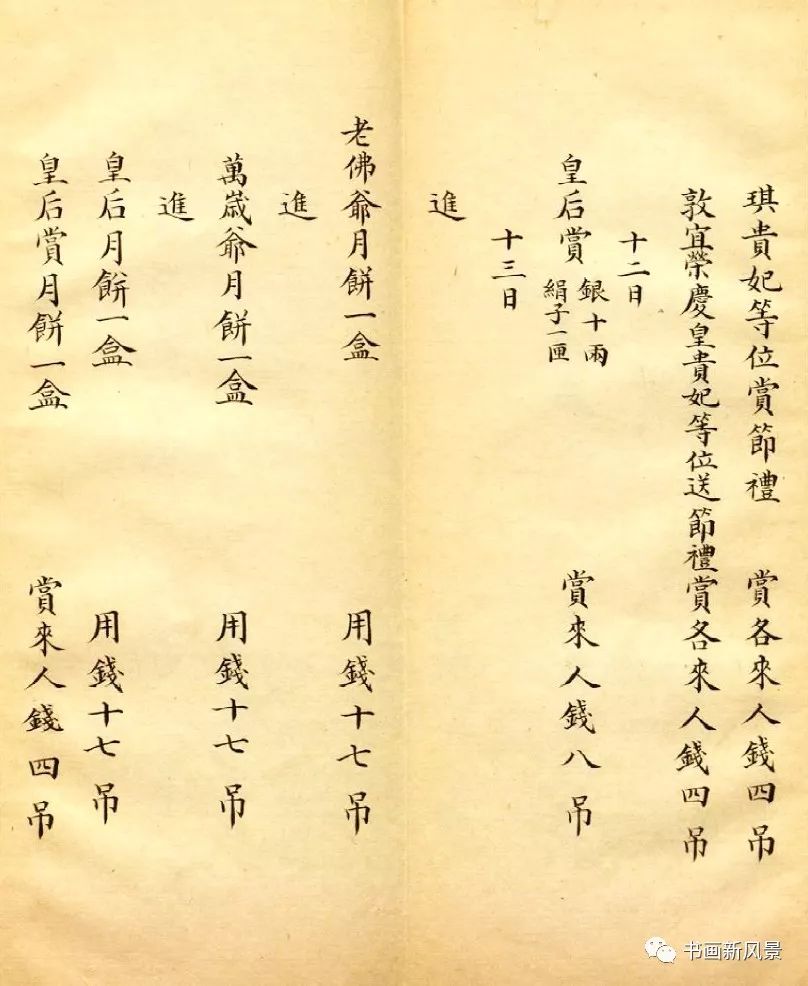 琪貴妃等位賞節禮 賞各來人錢四吊
敦宜榮慶皇貴妃等位送節禮賞各來人錢四吊
十二日
皇后賞 銀十兩 絹子一匣 賞來人錢八吊
十三日
進
老佛爺月餅一盒 用錢十七吊
進
萬歲爺月餅一盒 用錢十七吊
進
皇后月餅一盒 用錢十七吊
皇后賞月餅一盒 賞來人錢四吊
书画新风景